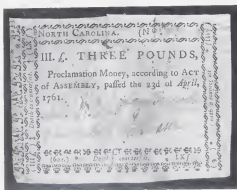 NORTH CAROLINA. (No
III. £. THREE POUNDS,
Proclamation Money, according to ACT
of ASSEMBLY, passed the 23d of April,
1761.